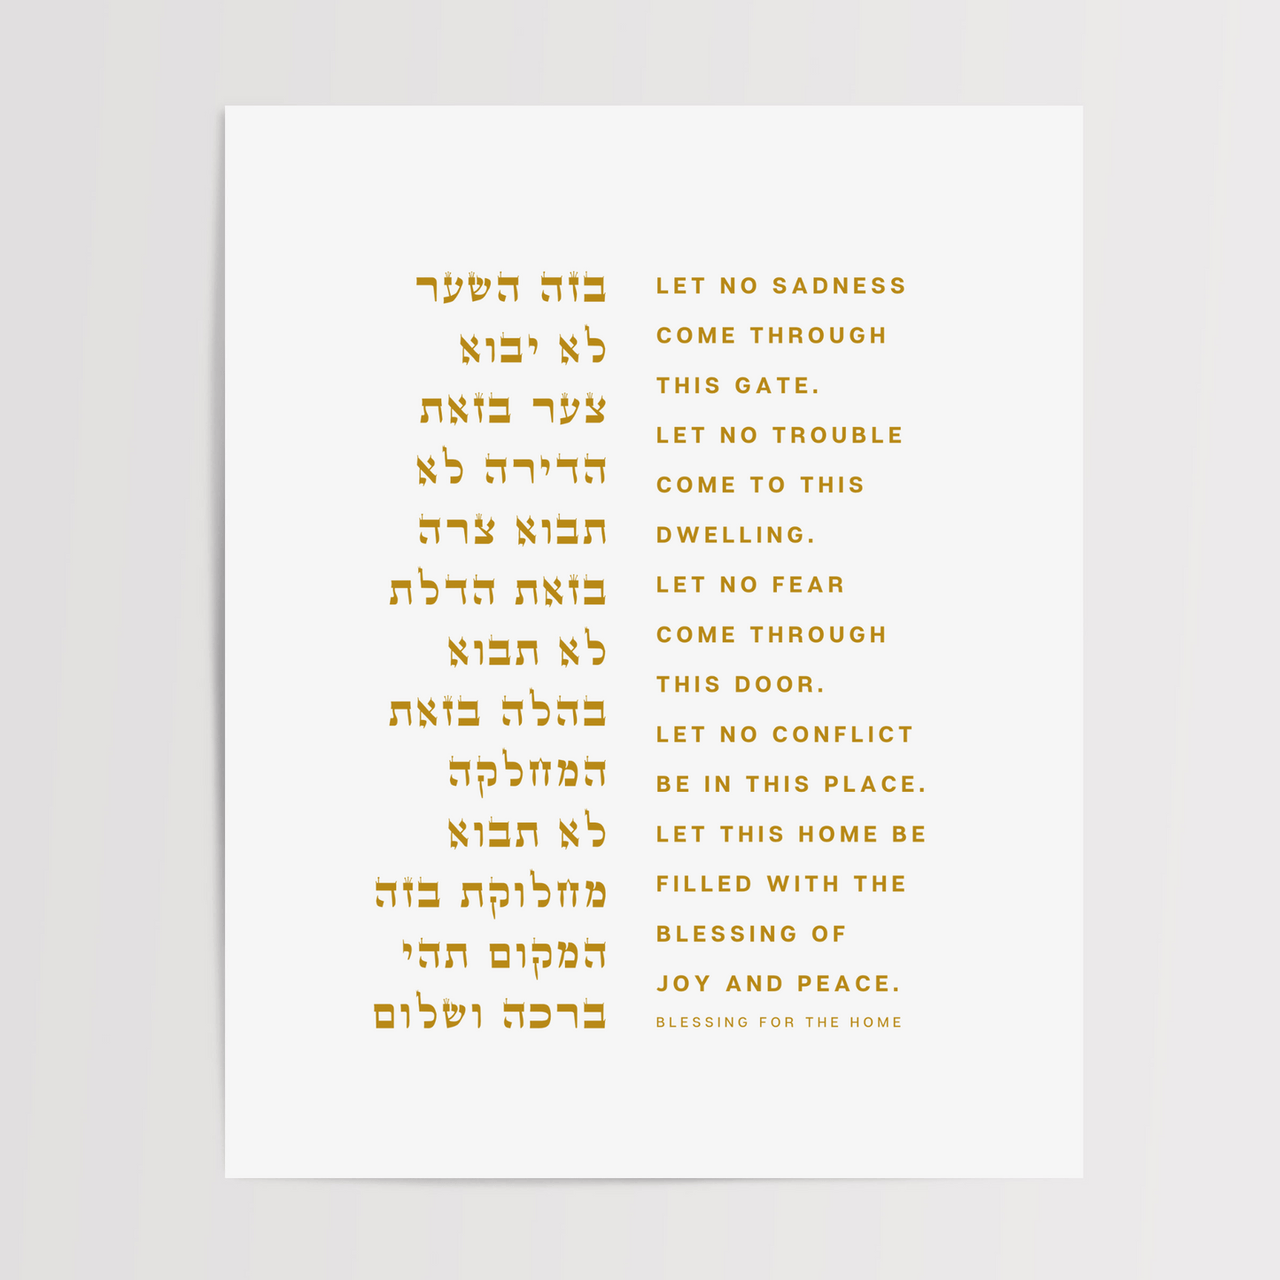 בזה השער
לא יבוא
צער בזאת
הדירה לא
תבוא צרה
בזאת הדלת
לא תבוא
בהלה בזאת
המחלקה
לא תבוא
מחלוקת בזה
המקום תהי
ברכה ושלום
LET NO SADNESS
COME THROUGH
THIS GATE.
LET NO TROUBLE
COME TO THIS
DWELLING.
LET NO FEAR
COME THROUGH
THIS DOOR.
LET NO CONFLICT
BE IN THIS PLACE.
LET THIS HOME BE
FILLED WITH THE
BLESSING OF
JOY AND PEACE.
BLESSING FOR THE HOME